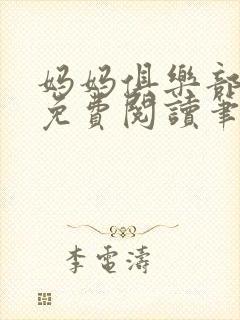 妈妈俱樂部
免費閱讀筆
李電濤